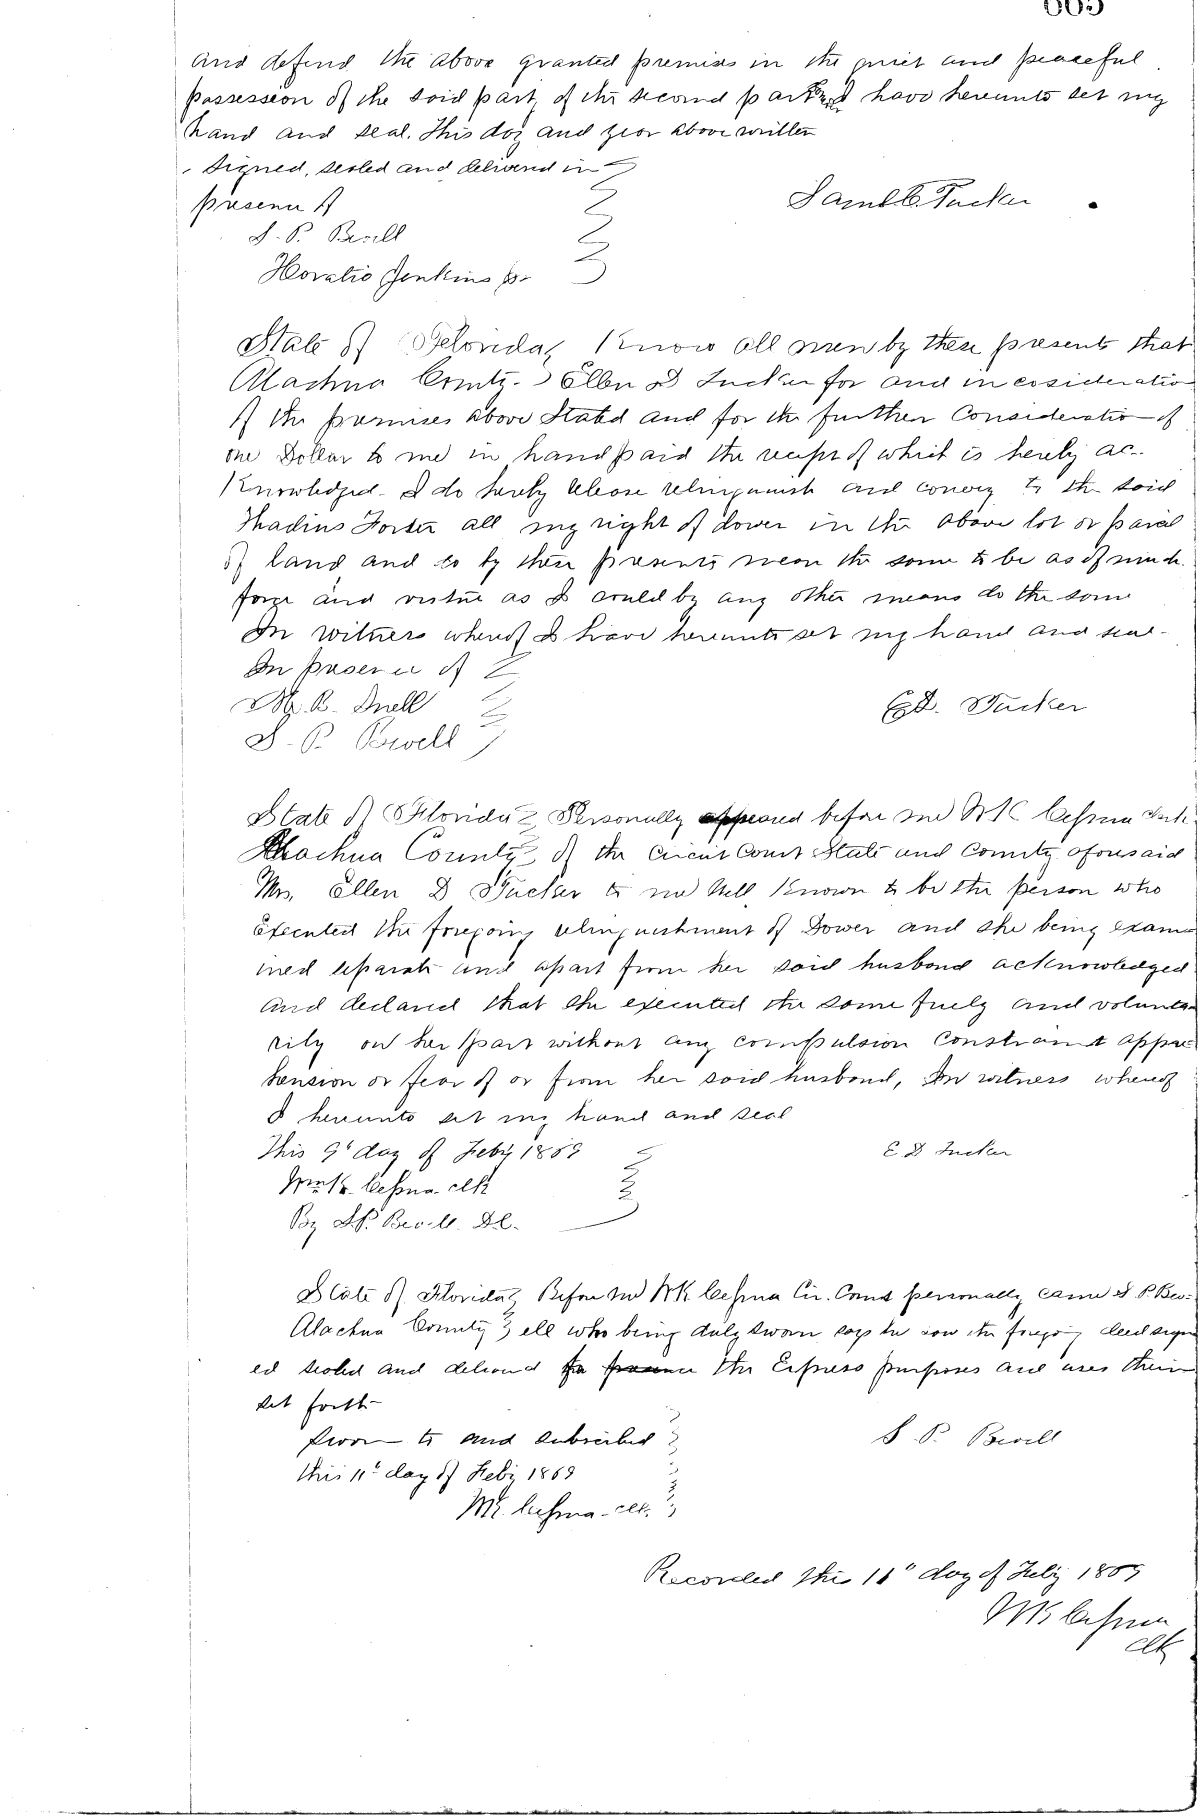 and defend the above granted premises in the quiet and peaceful
possession of the said party of the second part I have hereunto set my
hand and seal. This day and year above written
Signed, sealed and delivered in
presence of
Saml C. Tucker
S. P. Bevill
Horatio Jenkins Jr
State of Florida, Know all men by these presents that
Alachua County. Ellen D Tucker for and in cosideration
of the premises above Stated and for the further Consideration of
one Dollar to me in hand paid the receipt of which is hereby ac-
Knowledged. I do hereby release relinquish and convey to the said
Thadius Foster all my right of dower in the above lot or parcel
of land and do by these presents mean the same to be as of much
force and virtue as I could by any other means do the same
In witness whereof I have hereunto set my hand and seal-
In presence of
M. R. Snell
E D. Tucker
S. P. Bevell
State of Florida Personally appeared before me WK Cessna Clerk
Alachua County of the Circuit Court State and County aforesaid
Mrs. Ellen D Tucker to me Well Known to be the person who
Executed the foregoing relinquishment of Dower and she being exam-
ined separate and apart from her said husband acknowledged
and declared that she executed the same freely and volunta
rily on her part without any compulsion Constraint appre
hension or fear of or from her said husband, In witness whereof
I hereunto set my hand and seal
This 9th day of Feby 1869
E D. Tucker
Wm K. Cessna clk
By S.P. Bevill. D.C.
State of Florida Before me WK Cessna Cir. Court personally came S. P Bev-
Alachua County ell who being duly sworn says he saw the foregoing deed sign
ed sealed and delivered the Express purposes and uses therein
set forth
Sworn to and subscribed
S. P. Bevill
this 11th day of Feby 1869
WK. Cessna clk.
Recorded this 11" day of Feby 1869
WK Cessna
clk